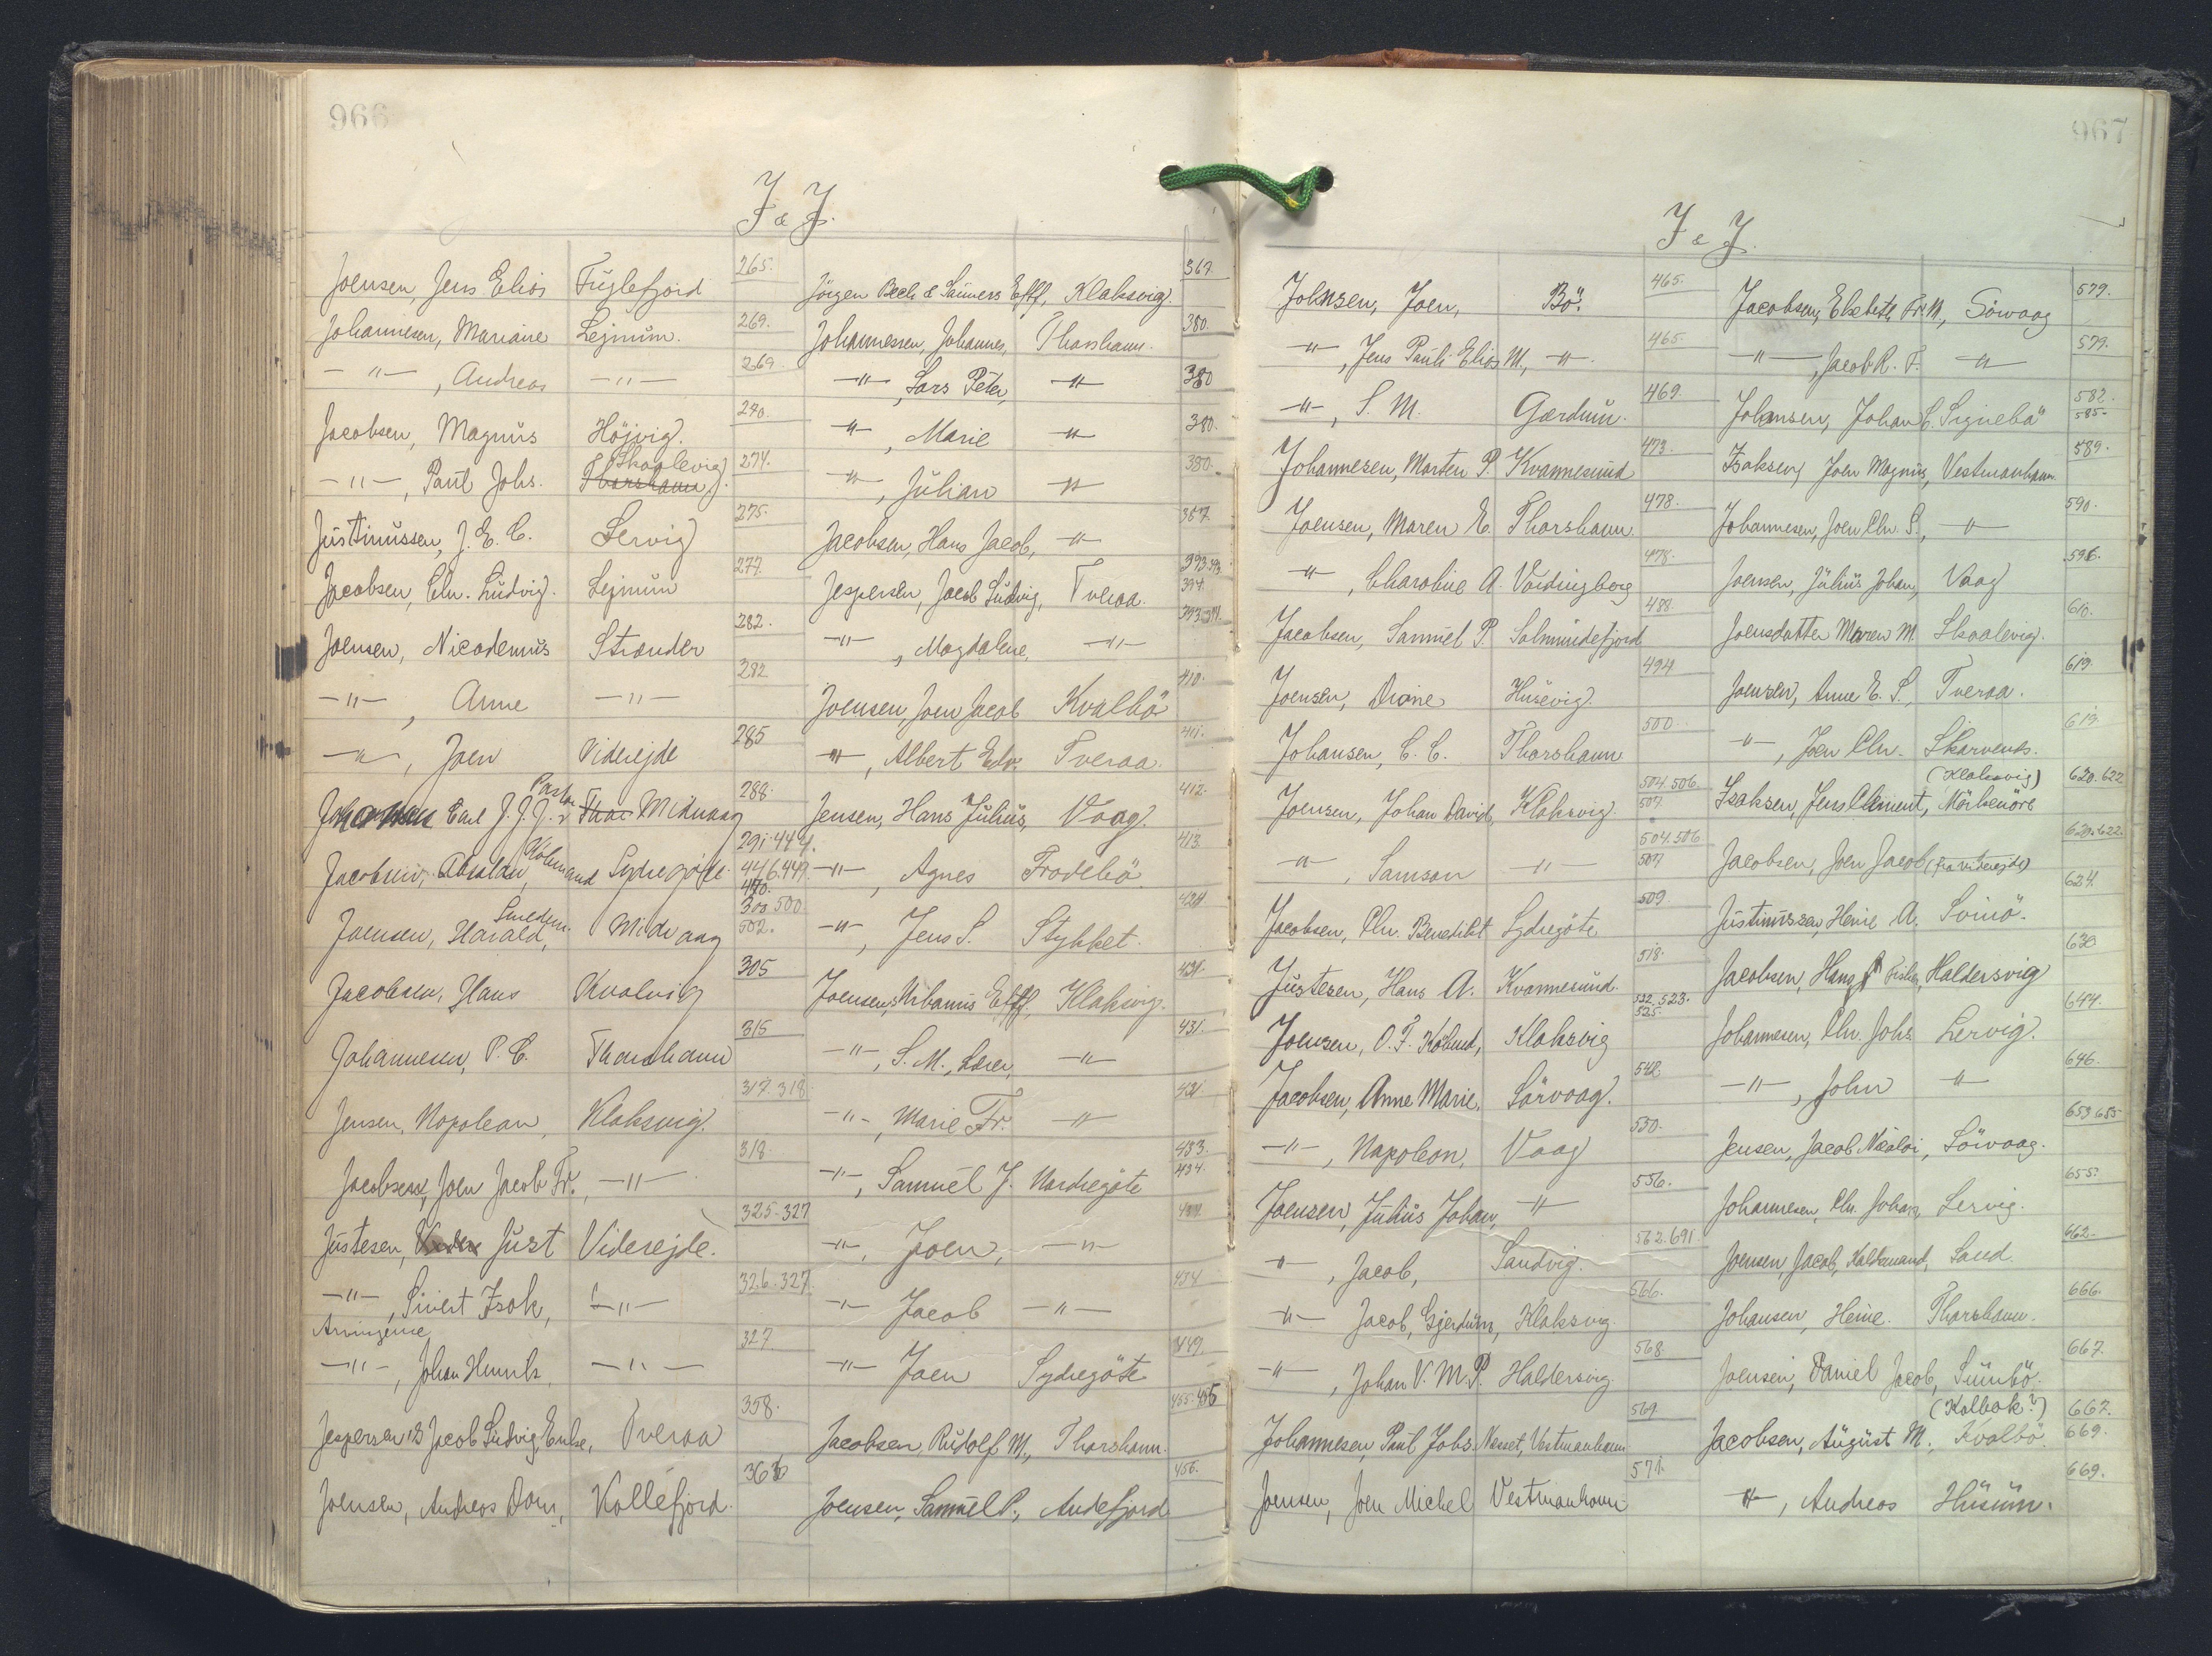 966
I & J.
Joensen, Jens Elias Fuglefjord 265.
Johannesen, Mariane Lejnum. 269.
-"-, Andreas -"- 269.
Jacobsen, Magnus Höjvig. 270.
-"-, Paul Johs. Thorshavn. Skaalevig 274.
Justinussen, J. E. C. Lervig 275.
Jacobsen, Chr. Ludvig. Lejnum 277.
Joensen, Nicodemus Strænder 282.
-"-, Anne -"- 282
-"-, Joen Viderejde 285
Johansen Carl J. J. J. Pastor Midvaag 288.
Jacobsen, Absalon, Köbmand Sydregöte 291. 444. 446. 449. 470.
Joensen, Harald, Smeden. Midvaag 300 500. 502.
Jacobsen, Hans Kvalvig 305
Johannesen, P. C. Thorshavn 315
Jensen, Napolean, Klaksvig. 317. 318
Jacobsen, Joen Jacob Fr. -"- 318.
Justesen, Just Viderejde. 325. 327
-"-, Sivert Isak, -"- 326. 327.
Arvingerne
-"-, Johan Henrik, -"- 327.
Jespersen's Jacob Ludvig Enke, Tveraa 358.
Joensen, Andreas Dan, Kollefjord. 360
Jörgen Bech & Sönners Eftf, Klaksvig. 367
Johannessen, Johannes, Thorshavn. 380.
-"-, Lars Peter, -"- 380
-"-, Marie -"- 380.
-"-, Julian -"- 380.
Jacobsen, Hans Jacob, -"- 387.
Jespersen, Jacob Ludvig, Tveraa. 393. 394.
-"-, Magdalene, -"- 393.
Joensen, Joen Jacob Kvalbö 410.
-"-, Albert Edv. Tveraa. 411.
Jensen, Hans Julius, Vaag. 412.
-"-, Agnes Frodebö. 413.
-"-, Jens S. Stykket. 424
Joensens, Urbanus Eftf, Klaksvig. 431.
-"-, S. M., Lærer, -"- 431.
-"-, Marie Fr. -"- 431
-"-, Samuel J. Nordregöte 433. 434.
-"-, Joen, -"- 434.
-"- Jacob -"- 434
-"- Joen Sydregöte 449.
Jacobsen, Rudolf M., Thorshavn. 455. 456
Joensen, Samuel P., Andefjord 456.
967
I & J.
Johnsen, Joen, Bö. 465.
-"-, Jens Pauli Elias M., -"-. 465.
-"-, S. M. Gærdum. 469.
Johannesen, Morten P. Kvannesund 473.
Joensen, Maren E. Thorshavn. 478.
-"-, Charoline A. Vordingborg 478.
Jacobsen, Samuel P. Salmundefjord 488.
Joensen, Diane Husevig. 494
Johansen, C. C. Thorshavn 500.
Joensen, Johan David, Klaksvig. 504. 506. 507.
-"-, Samson -"- 504. 506. 507
Jacobsen, Chr. Benedikt Sydregöte 509
Justesen, Hans A. Kvannesund. 518.
Joensen, O. F. Köbmd, Klaksvig 522. 523. 525.
Jacobsen, Anne Marie, Sörvaag. 542
-"-, Napoleon, Vaag 550.
Joensen, Julius Johan, -"- 556.
-"-, Jacob, Sandvig. 562. 691
-"- Jacob, Gjerdum, Klaksvig. 566.
-"-, Johan V. M. P. Haldersvig. 568.
Johannesen, Paul Johs. Nesset, Vestmanhavn 569.
Joensen, Joen Michel Vestmanhavn 571.
Jacobsen, Elsebeth Fr. M., Sörvaag 579.
-"-, Jacob R. F. -"- 579.
Johansen, Johan C. Signebö 582. 585.
Isaksen, Joen Magnus, Vestmanhavn. 589.
Johannesen, Joen Chr. S., -"- 590.
Joensen, Julius Johan, Vaag 596.
Joensdatter Maren M. Skaalevig. 610.
Joensen, Anne E. S., Tveraa. 619.
-"-, Joen Chr. Skarvenes. 619.
Isaksen, Jens Clement, Mörkenöre (Klaksvig) 620. 622
Jacobsen, Joen Jacob (Fra Viderejde) 620. 622.
Justinussen, Heine A. Svinö. 624.
Jacobsen, Hans Haldersvig 630
Johannesen, Chr. Johs. Lervig. 644.
-"-, John -"- 646.
Jensen, Jacob Nicolai, Sörvaag. 653 685
Johannesen, Chr. Johan, Lervig. 655.
Joensen, Jacob, Kaldsmand, Sand 662.
Johansen, Heine. Thorshavn. 666.
Joensen, Daniel Jacob, Sumbö. 667.
Jacobsen, August M., Kvalbö. (Kolbak?) 667. 669.
-"-, Andreas Husum. 669.